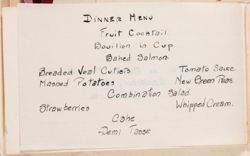 Dinner Menu
Fruit Cocktail
Bouillon in Cup
Baked Salmon
Breaded Veal Cutlets Tomato Sauce
Mashed Potatoes New Green Peas
Combination Salad
Strawberries Whipped Cream.
Cake
-Demi Tasse